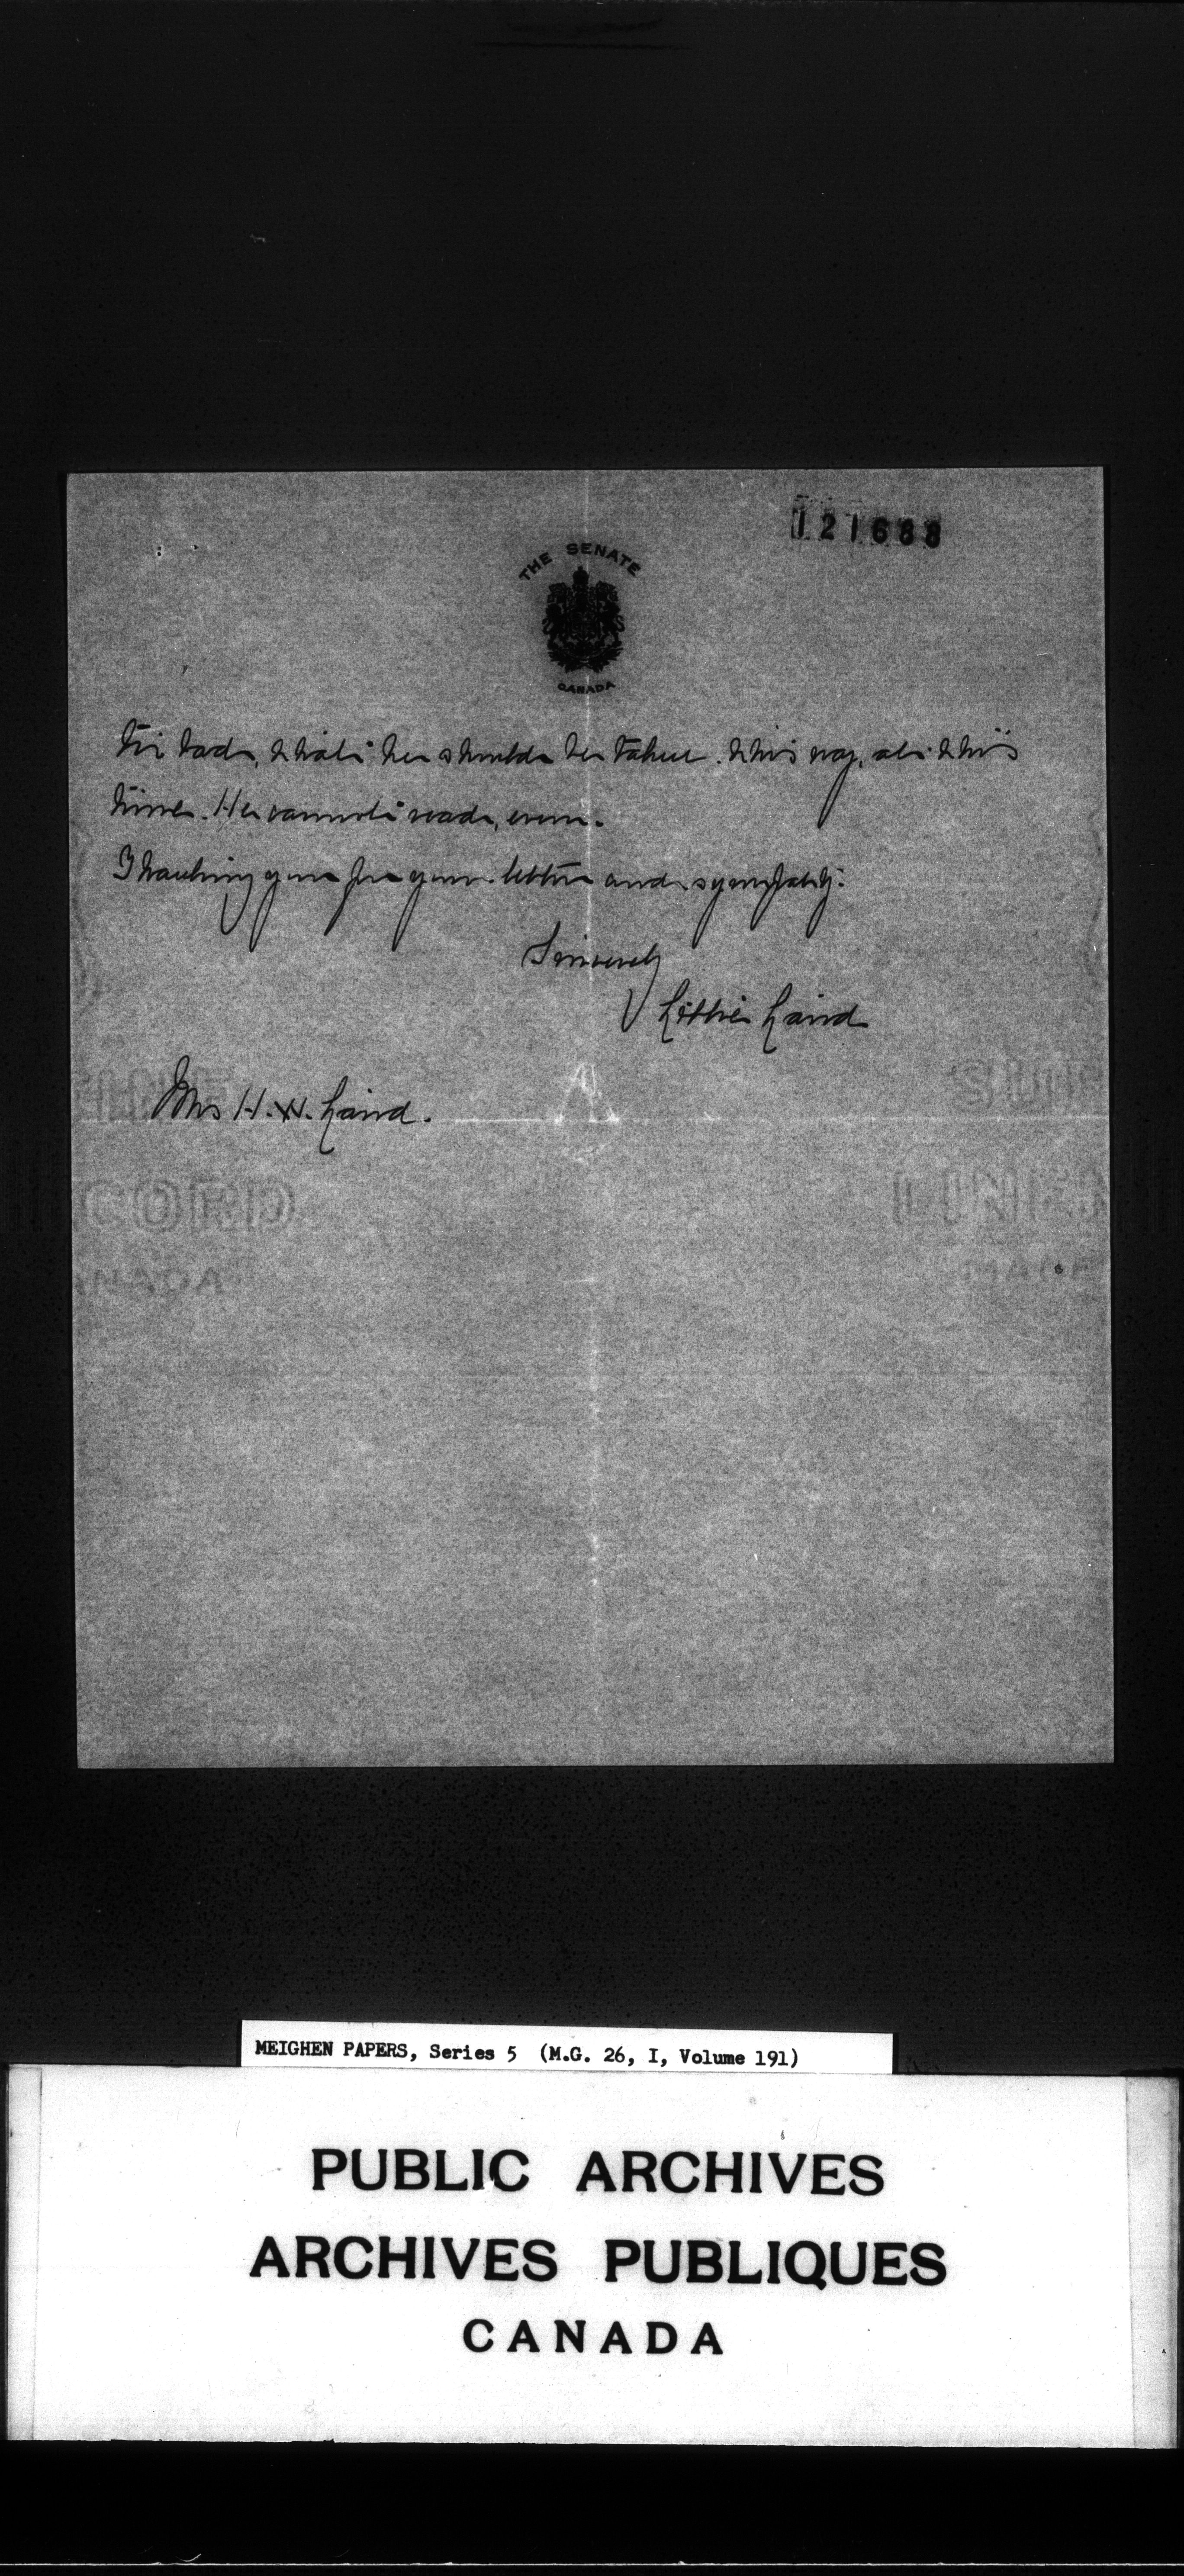 121688
THE SENATE
CANADA
to bad, that he should be taken this way, at this
time. He cannot read, even.
Thanking you for your letter and sympathy.
Sincerely
Lottie Laird
Mrs H. W. Laird.
CORD
LINEN
NADA
MADE
MEIGHEN PAPERS, Series 5 (M.G. 26, I, Volume 191)
PUBLIC ARCHIVES
ARCHIVES PUBLIQUES
CANADA